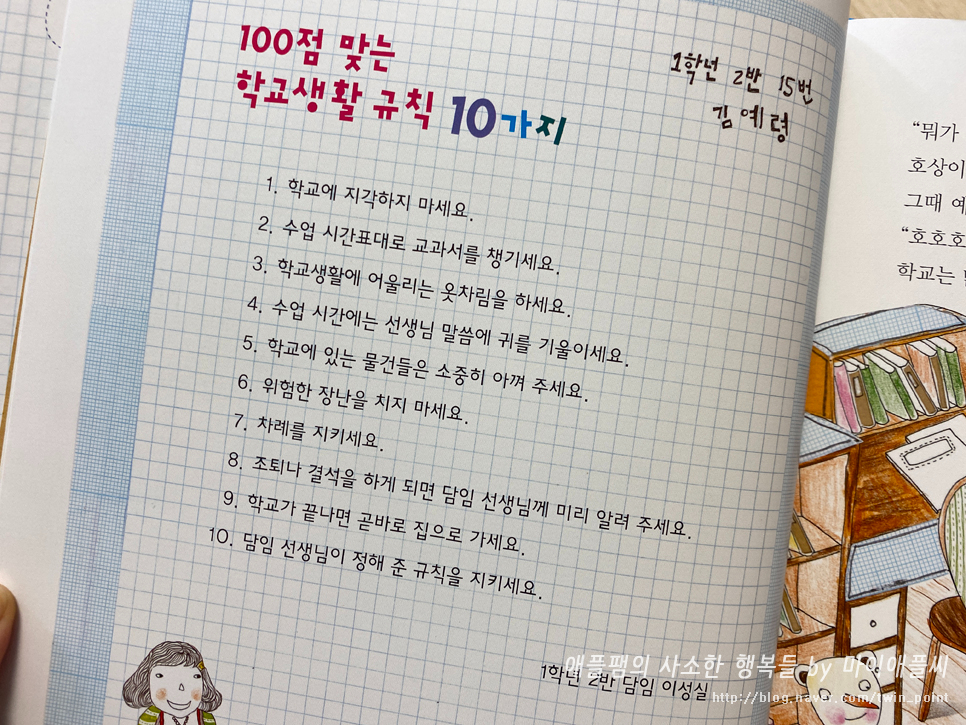 100점 맞는
학교생활 규칙 10가지
1학년 2반 15번
김예령
1. 학교에 지각하지 마세요.
2. 수업 시간표대로 교과서를 챙기세요.
3. 학교생활에 어울리는 옷차림을 하세요.
4. 수업 시간에는 선생님 말씀에 귀를 기울이세요.
5. 학교에 있는 물건들은 소중히 아껴 주세요.
6. 위험한 장난을 치지 마세요.
7. 차례를 지키세요.
8. 조퇴나 결석을 하게 되면 담임 선생님께 미리 알려 주세요.
9. 학교가 끝나면 곧바로 집으로 가세요.
10. 담임 선생님이 정해 준 규칙을 지키세요.
1학년 2반 담임 이성실
“뭐가
호상이
그때 예
“호호호
학교는
애플팸의 사소한 행복들 by 마인애플씨
http://blog.naver.com/twin_point